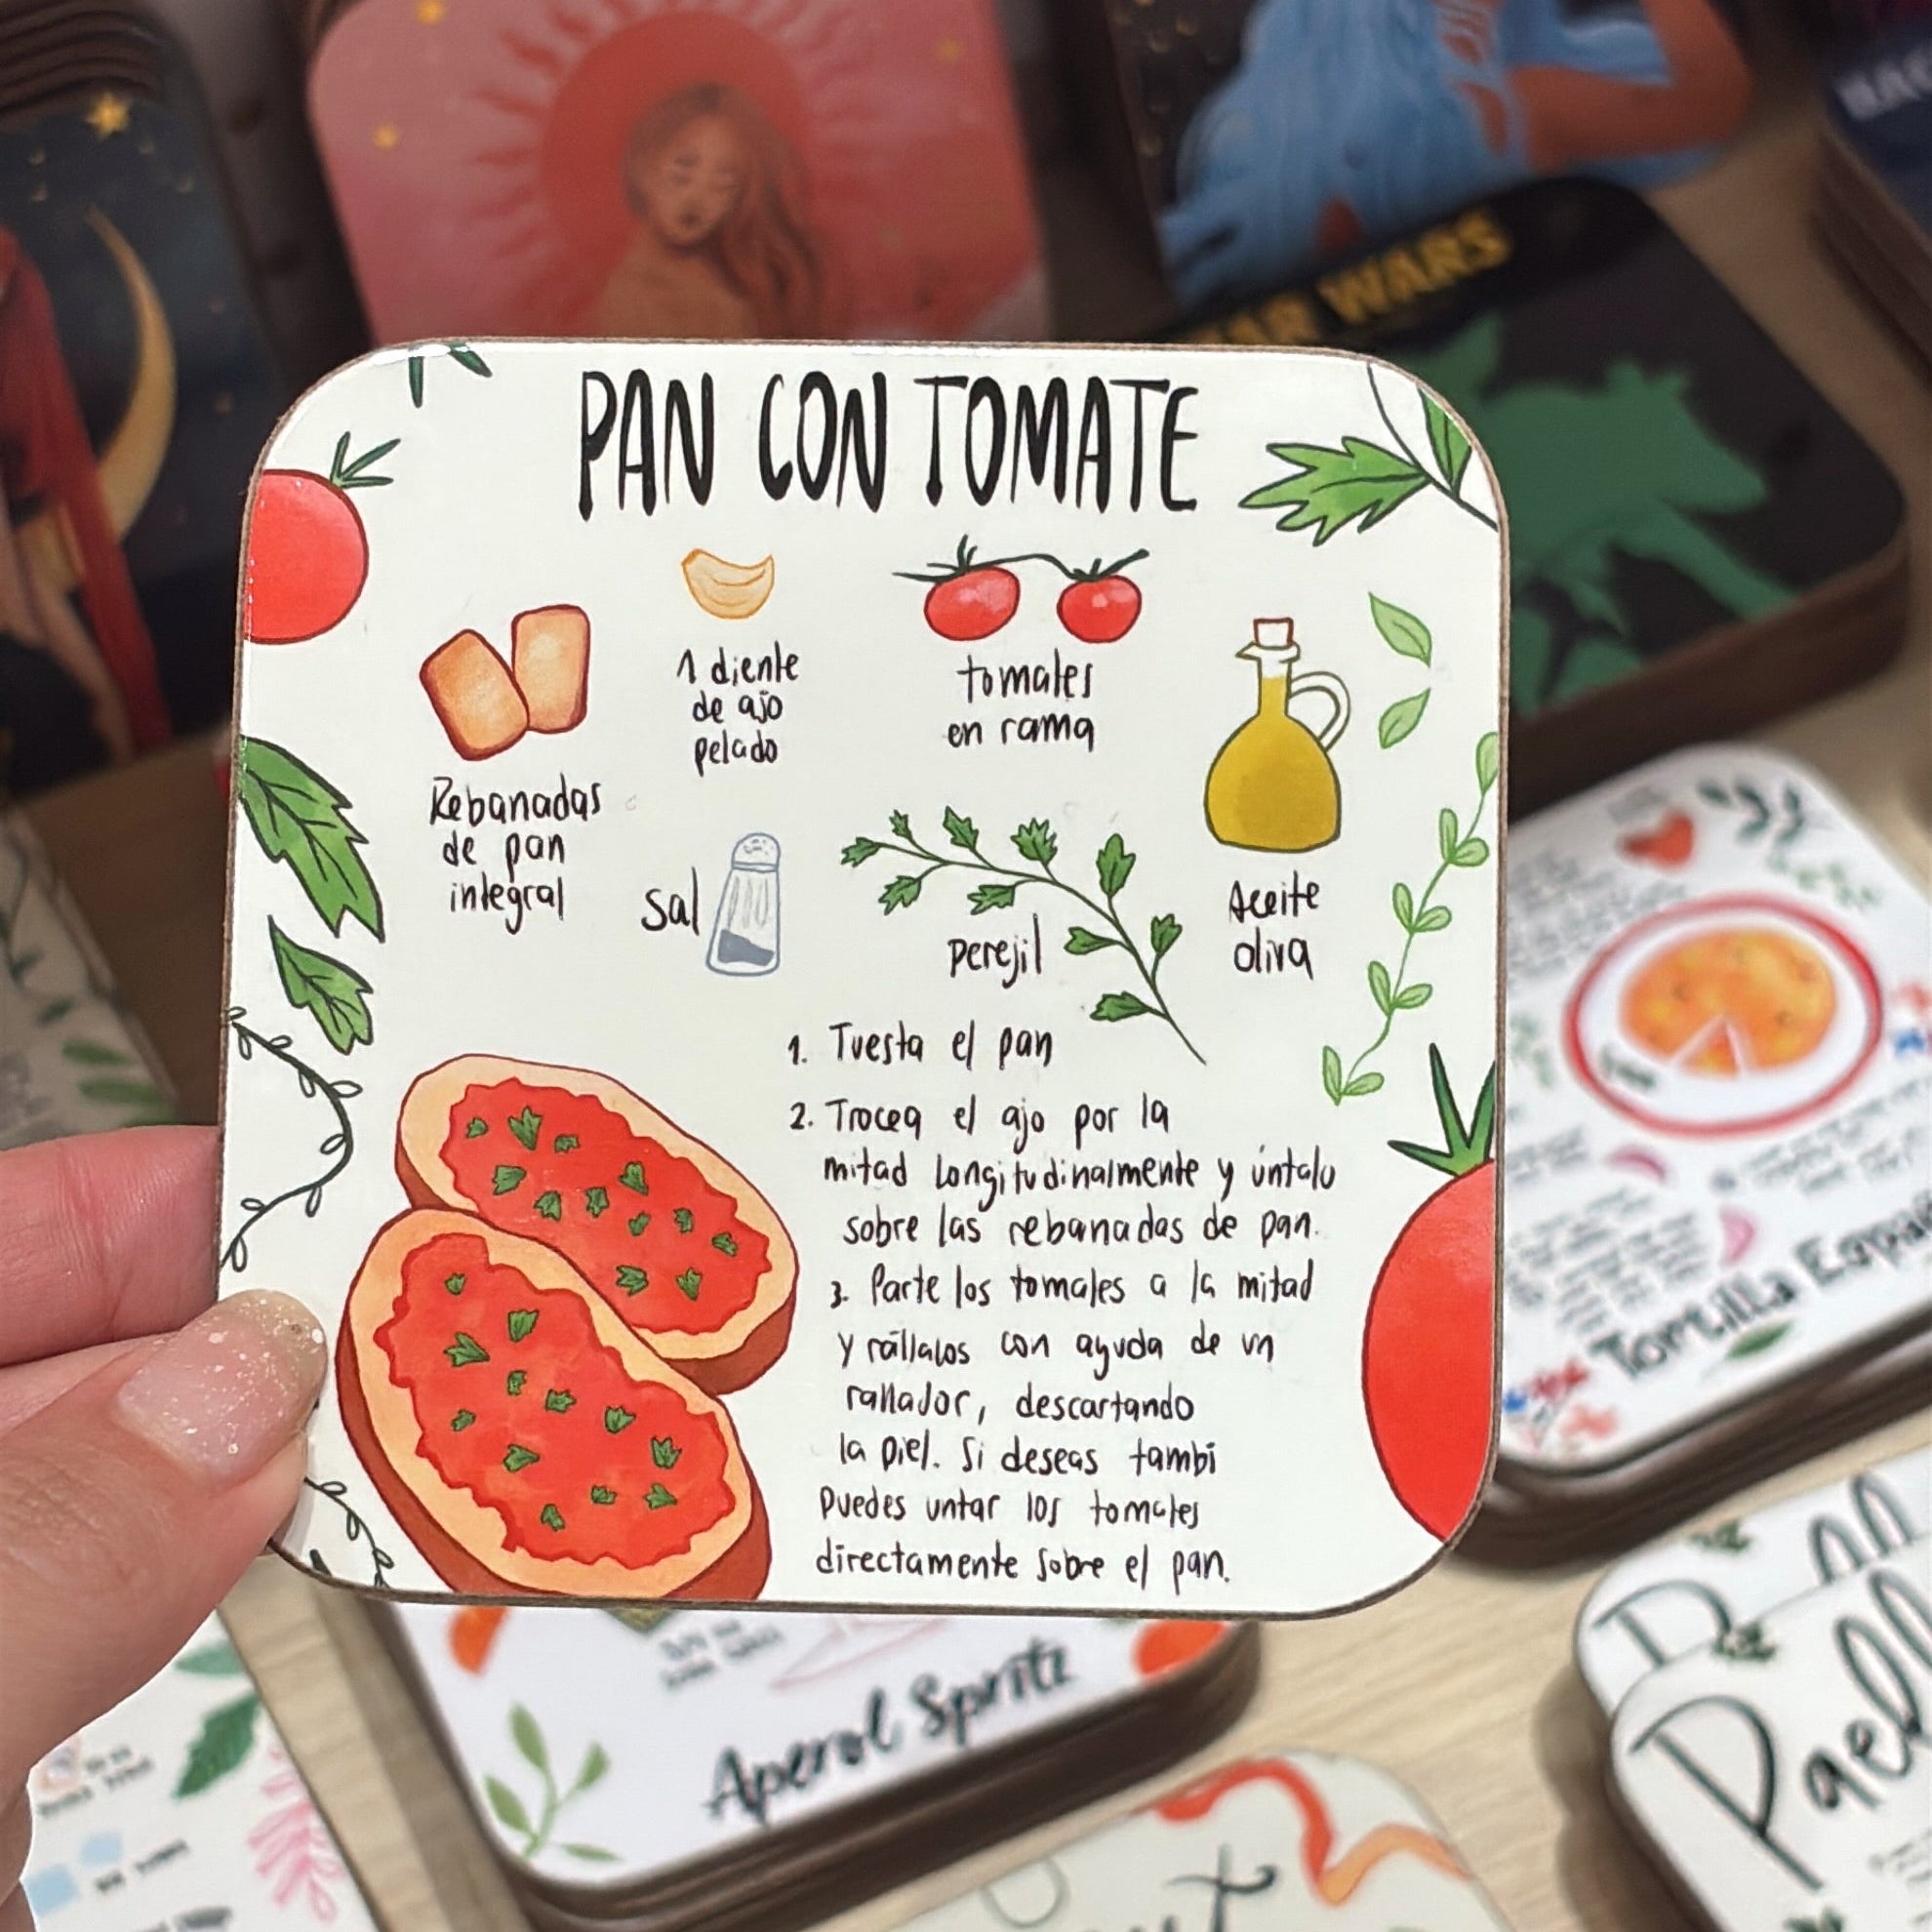 WARS
PAN CON TOMATE
1 diente
de ajo
pelado
tomates
en rama
Rebanadas
de pan
integral
Sal
perejil
Aceite
oliva
1. Tuesta el pan
2. Trocea el ajo por la
mitad longitudinalmente y úntalo
sobre las rebanadas de pan.
3. Parte los tomates a la mitad
y rállalos con ayuda de un
rallador, descartando
la piel. Si deseas tambi
puedes untar los tomates
directamente sobre el pan.
Tortilla Españ
Aperol Spritz
Paell